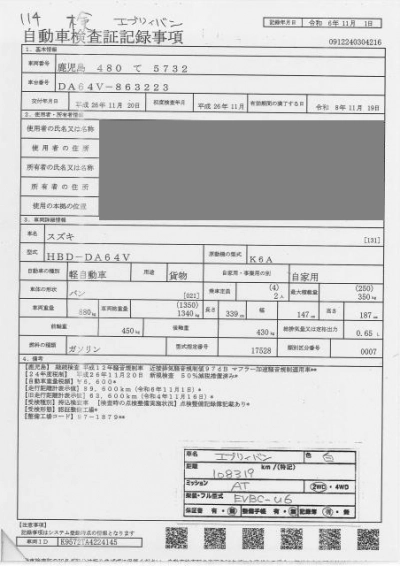 114 検 エブリィバン
記録年月日 令和 6年11月 1日
自動車検査証記録事項 0912240304216
1. 基本情報
車両番号 鹿児島 480 て 5732
車台番号 DA64V-863223
交付年月日 平成 26年 11月 20日 初度検査年月 平成 26年 11月 有効期間の満了する日 令和 8年 11月 19日
2. 使用者・所有者情報
使用者の氏名又は名称
使用者の住所
所有者の氏名又は名称
所有者の住所
使用の本拠の位置
3. 車両詳細情報
車名 スズキ [131]
型式 HBD-DA64V 原動機の型式 K6A
自動車の種別 軽自動車 用途 貨物 自家用・事業用の別 自家用
車体の形状 バン [021] 乗車定員 (4) 2人 最大積載量 (250) 350kg
車両重量 880kg 車両総重量 (1350) 1340kg 長さ 339cm 幅 147cm 高さ 187cm
前軸重 450kg 後軸重 430kg 総排気量又は定格出力 0.65 L
燃料の種類 ガソリン 型式指定番号 17528 類別区分番号 0007
4. 備考
[鹿児島] 継続検査 平成12年騒音規制車 近接排気騒音規制値97dB マフラー加速騒音規制適用車*
[自動車重量税額] ¥6,600*
[走行距離計表示値] 89,600km (令和6年11月1日)*
[旧走行距離計表示値] 63,600km (令和4年11月16日)*
[受検種別] 持込検査車 [検査時の点検整備実施状況] 点検整備記録簿記載あり*
[受検形態] 認証整備工場*
[整備工場コード] 07-1879*
車名 エブリィバン 色 白
距離 108319 km / (特記)
ミッション AT 2WC・4WD
類型・フル型式 EVBC-U6
保証整 有・無 整備手帳 有・無 記録簿 有・無
[注意事項]
記録事項はシステム登録時点の仕様となります
車両ID K95727A4224145